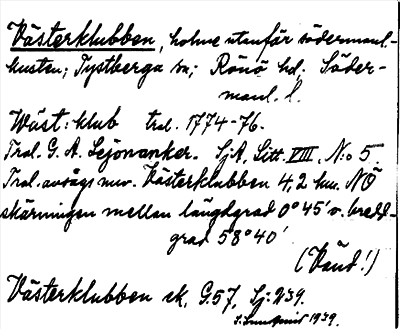 Västerklubben, holme utanför södermanl.-
kusten; Tystberga sn; Rönö hd; Söder-
manl. l.
Wäst: klub trol. 1774-76.
Trol. G. A. Lejonanker. SjA, Litt. VIII, N:o 5.
Trol. avsågs nuv. Västerklubben 4,2 km. NÖ
skärningen mellan längdgrad 0° 45' o. bredd-
grad 58° 40'
(Vänd!)
Västerklubben ek. G.57, Sj: 239.
1939.